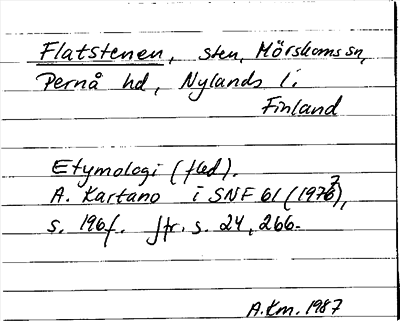 Flatstenen, sten, Mörskoms sn,
Pernå hd, Nylands l.
Finland
Etymologi (fled).
A. Kartano i SNF 61 (1973),
s. 196f. Jfr. s. 24, 266.
A.Km. 1987